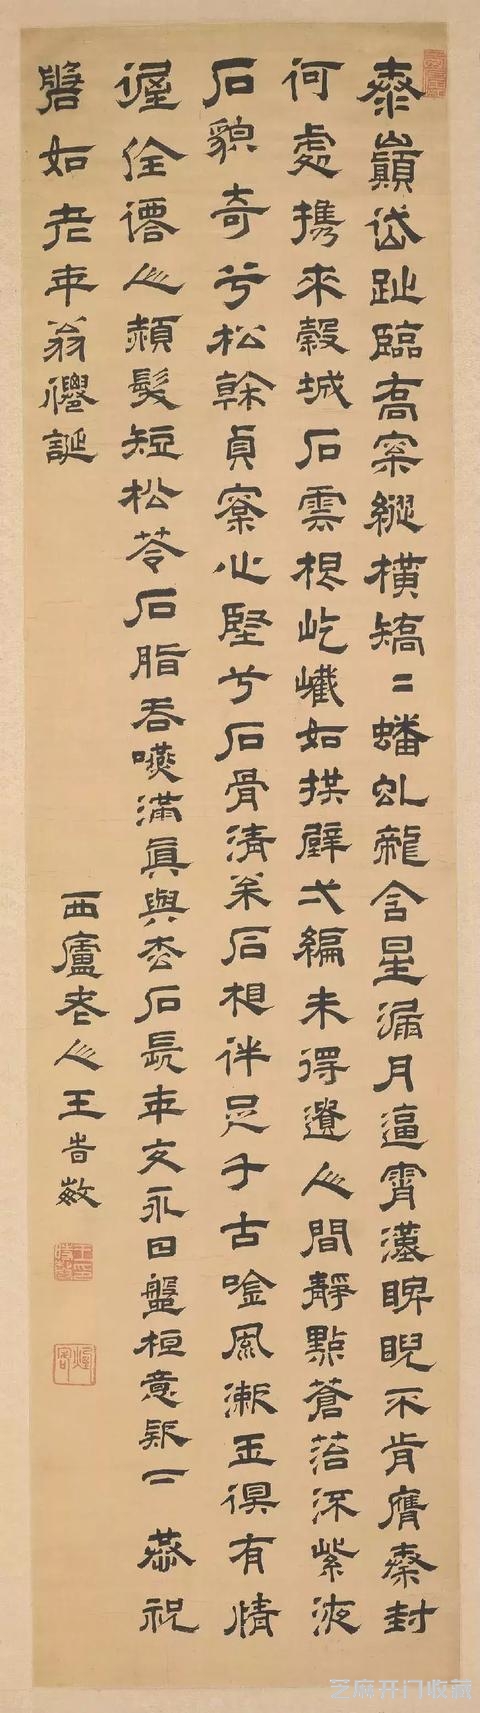 泰巔岱趾臨高案縱橫矯二蟠虬龍含星漏月逼霄漢睥睨不肯膺秦封
何處攜來穀城石雲根屹嶻如拱璧弌編未得遺人間靜點蒼苔深紫液
石貌奇兮松榦貞心堅兮石骨清枀石相伴足千古唫風漱玉俱有情
偓佺僊人頳髮短松苓石脂吞嚥滿眞與枀石長年友永日盤桓意二恭祝
磐如老年翁誕
西廬老人王旹敏
煙客
芝麻开门收藏